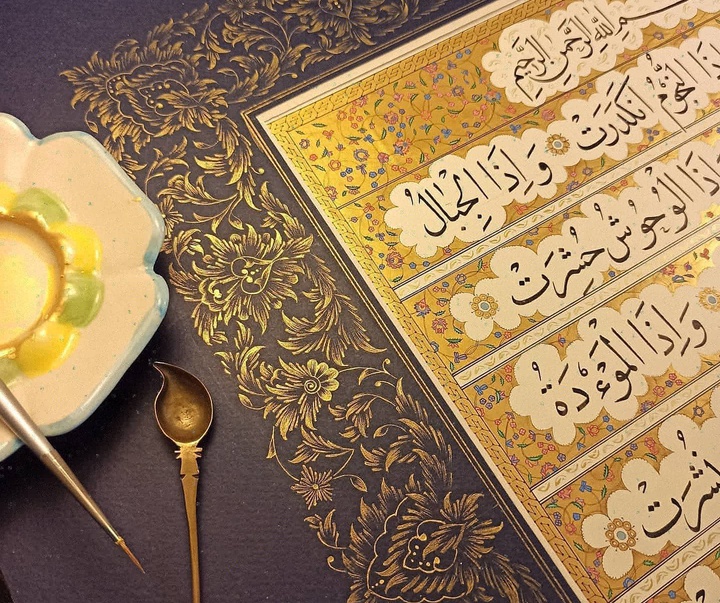 اللهِ الرَّحْمٰنِ الرَّحِيمِ
النُّجُومُ انْكَدَرَتْ وَاِذَا الْجِبَالُ
الْوُحُوشُ حُشِرَتْ
وَاِذَا الْمَوْءُدَةُ
نُشِرَتْ